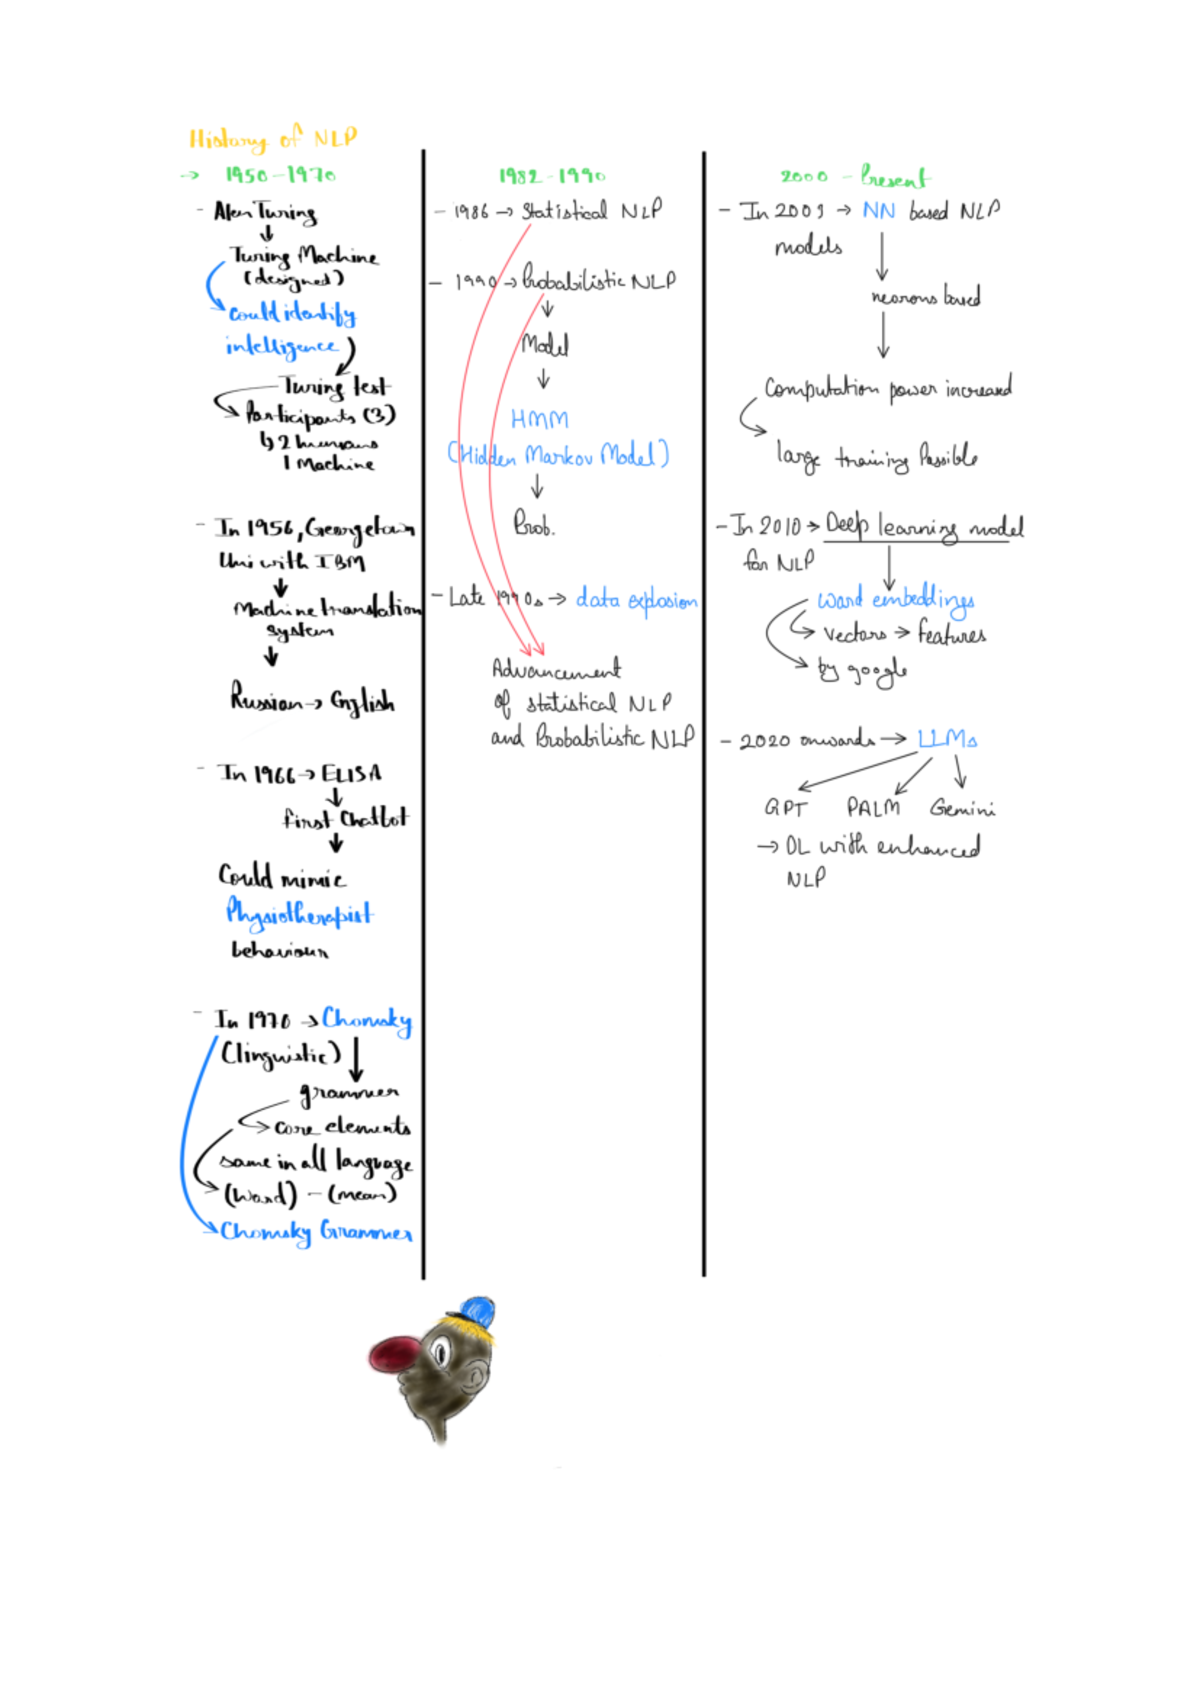 History of NLP
→ 1950-1970
- Alan Turing
↓
Turing Machine
(designed)
could identify
intelligence
Turing test
Participants (3)
↳ 2 humans
1 Machine
- In 1956, Georgetown
Uni with IBM
↓
Machine translation
system
↓
Russian → English
- In 1966 → ELISA
↓
first Chatbot
↓
Could mimic
Physiotherapist
behaviour
- In 1970 → Chomsky
(linguistic) ↓
grammer
core elements
same in all language
(word) - (mean)
Chomsky Grammer
1982-1990
- 1986 → Statistical NLP
- 1990 → Probabilistic NLP
↓
Model
↓
HMM
(Hidden Markov Model)
↓
Prob.
- Late 1990s → data explosion
Advancement
of statistical NLP
and Probabilistic NLP
2000 - Present
- In 2009 → NN based NLP
models
↓
neorons based
↓
Computation power increased
large training Possible
- In 2010 → Deep learning model
for NLP
↓
word embeddings
vectors → features
by google
- 2020 onwards → LLMs
GPT PALM Gemini
→ DL with enhanced
NLP